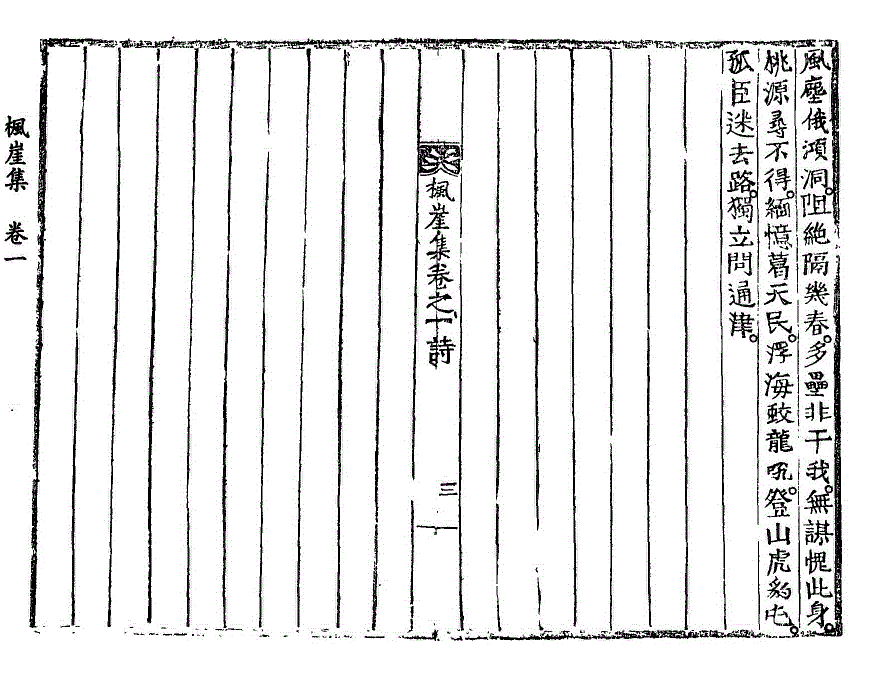 風塵俄澒洞。阻絶隔幾春。多壘非干我。無謀愧此身。
桃源尋不得。緬憶葛天民。浮海蛟龍吼。登山虎豹屯。
孤臣迷去路。獨立問通津。
楓崖集卷之一 詩
三
楓崖集 卷一